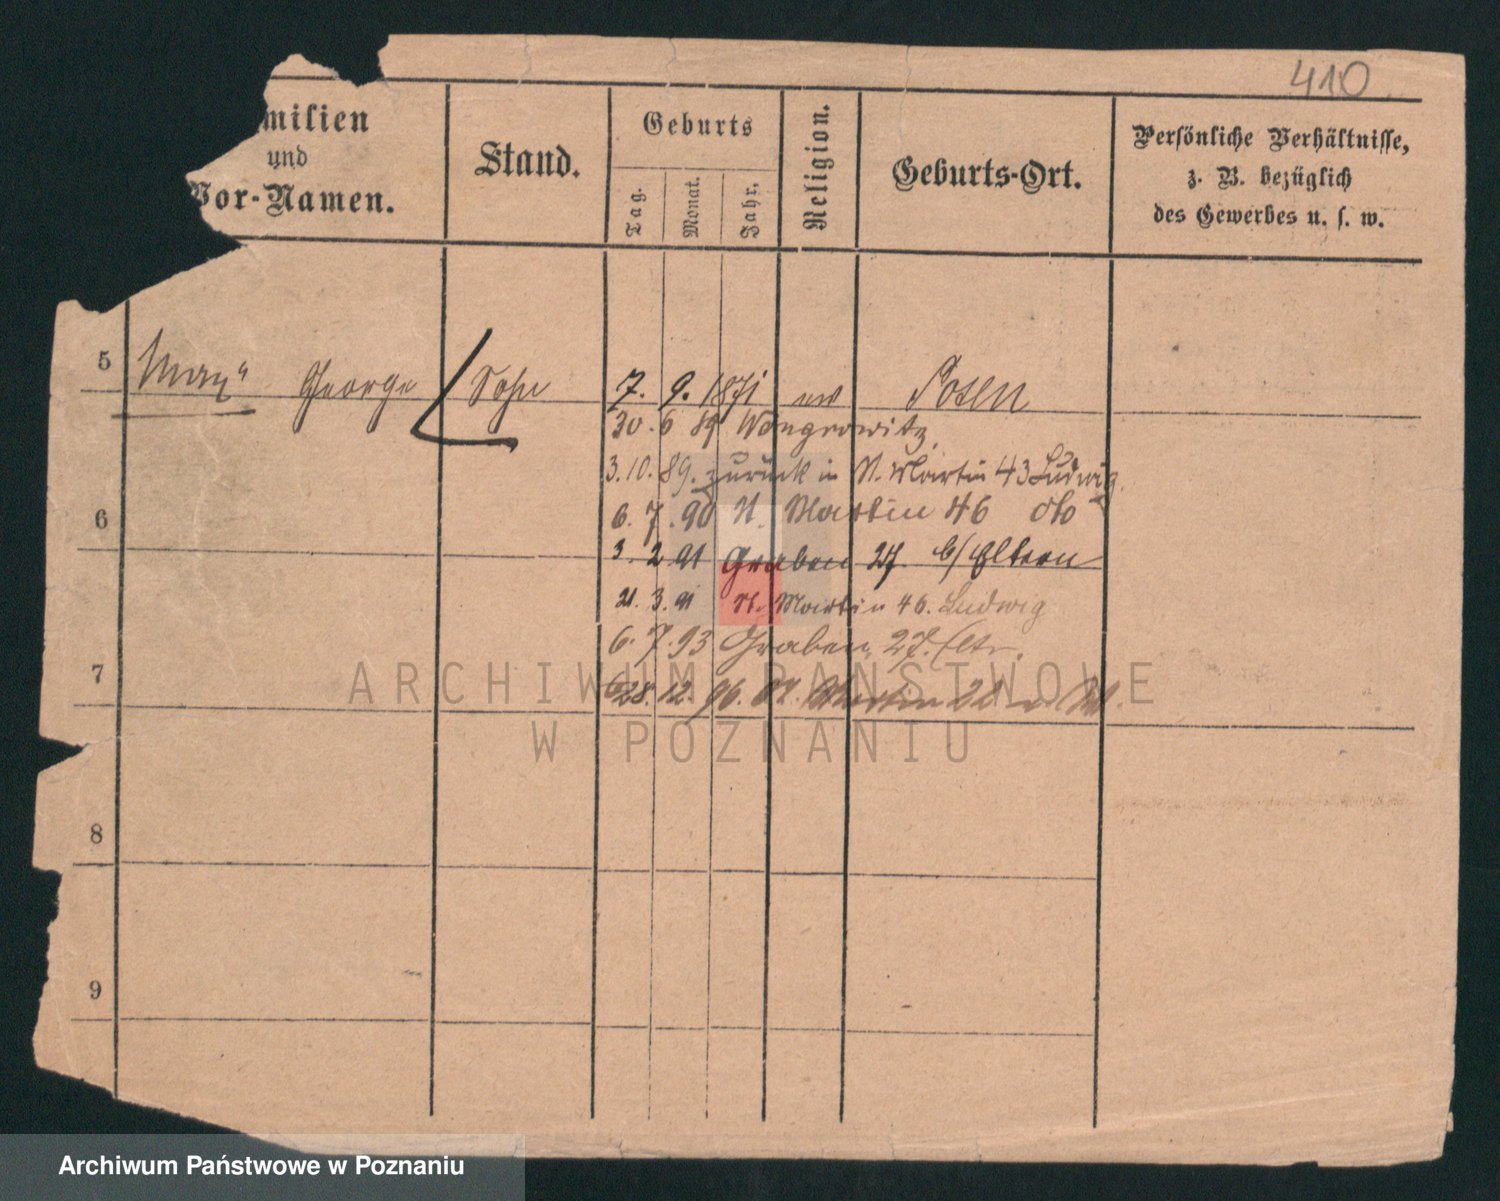 410
milien
und
Vor-Namen.
Stand.
Geburts
Tag.
Monat.
Jahr.
Religion.
Geburts-Ort.
Persönliche Verhältnisse,
z. B. bezüglich
des Gewerbes u. s. w.
5 George Sohn 7. 9. 1871 Posen
30. 6 89 Wongrowitz
3. 10. 89. zurück in St. Martin 43 Ludwig
6 6. 7. 90 St. Martin 46 dto
3. 2. 91 Graben 27. b/ Eltern
21. 3. 91 St. Martin 46. Ludwig
6. 7. 93 Graben 27. Eltr.
7 28. 12. 96. St. Martin
8
9
ARCHIWUM PAŃSTWOWE
W POZNANIU
Archiwum Państwowe w Poznaniu